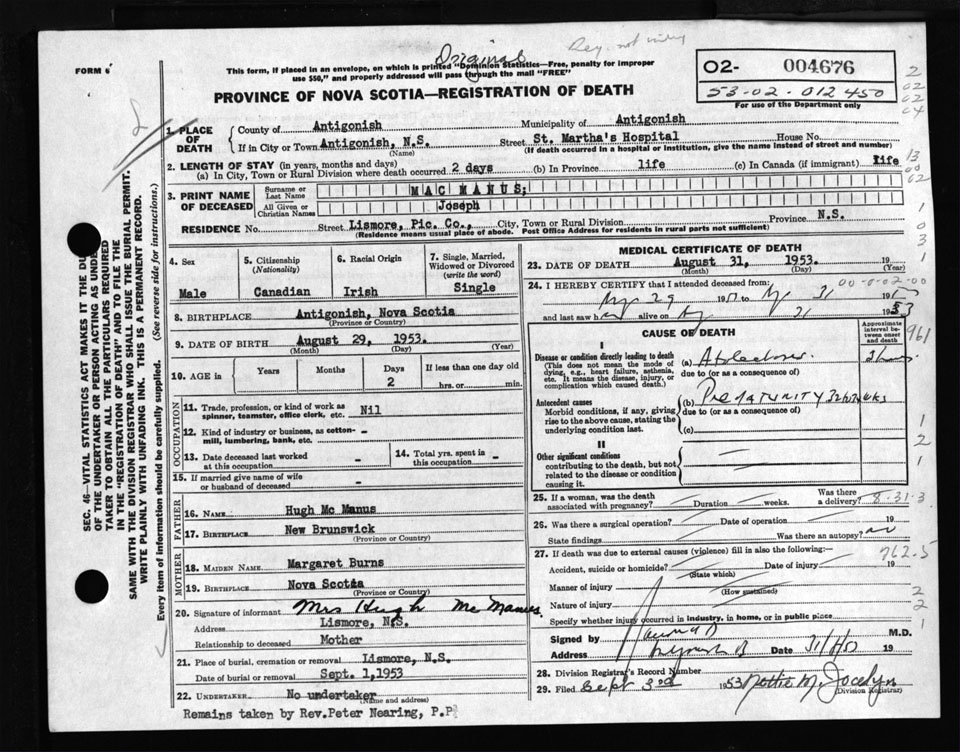 Original
FORM 6
This form, if placed in an envelope, on which is printed "Dominion Statistics—Free, penalty for improper
use $50," and properly addressed will pass through the mail "FREE"
PROVINCE OF NOVA SCOTIA—REGISTRATION OF DEATH
O2- 004676
53-02-012450
For use of the Department only
SEC. 46—VITAL STATISTICS ACT MAKES IT THE DU
OF THE UNDERTAKER OR PERSON ACTING AS UNDE
TAKER TO OBTAIN ALL THE PARTICULARS REQUIRED
IN THE "REGISTRATION OF DEATH" AND TO FILE THE
SAME WITH THE DIVISION REGISTRAR WHO SHALL ISSUE THE BURIAL PERMIT.
WRITE PLAINLY WITH UNFADING INK. THIS IS A PERMANENT RECORD.
Every item of information should be carefully supplied. (See reverse side for instructions.)
1. PLACE OF DEATH
County of Antigonish Municipality of Antigonish
If in City or Town Antigonish, N.S. Street St. Martha's Hospital House No.
(Name) (If death occurred in a hospital or institution, give the name instead of street and number)
2. LENGTH OF STAY (in years, months and days)
(a) In City, Town or Rural Division where death occurred 2 days (b) In Province life (c) In Canada (if immigrant) life
3. PRINT NAME OF DECEASED
Surname or Last Name MAC MANUS;
All Given or Christian Names Joseph
RESIDENCE No. Street Lismore, Pic. Co., City, Town or Rural Division Province N.S.
(Residence means usual place of abode. Post Office Address for residents in rural parts not sufficient)
4. Sex
Male
5. Citizenship (Nationality)
Canadian
6. Racial Origin
Irish
7. Single, Married, Widowed or Divorced (write the word)
Single
8. BIRTHPLACE Antigonish, Nova Scotia
(Province or Country)
9. DATE OF BIRTH August 29, 1953.
(Month) (Day) (Year)
10. AGE in Years Months Days If less than one day old
2 hrs. or min.
OCCUPATION
11. Trade, profession, or kind of work as
spinner, teamster, office clerk, etc. Nil
12. Kind of industry or business, as cotton-
mill, lumbering, bank, etc. -
13. Date deceased last worked
at this occupation -
14. Total yrs. spent in
this occupation -
15. If married give name of wife
or husband of deceased -
FATHER
16. NAME Hugh Mc Manus
17. BIRTHPLACE New Brunswick
(Province or Country)
MOTHER
18. MAIDEN NAME Margaret Burns
19. BIRTHPLACE Nova Scotia
(Province or Country)
20. Signature of informant Mrs Hugh Mc Manus
Address Lismore, N.S.
Relationship to deceased Mother
21. Place of burial, cremation or removal Lismore, N.S.
Date of burial or removal Sept. 1,1953
22. UNDERTAKER No undertaker
(Name and address)
Remains taken by Rev.Peter Nearing, P.P
MEDICAL CERTIFICATE OF DEATH
23. DATE OF DEATH August 31, 1953. 19
(Month) (Day) (Year)
24. I HEREBY CERTIFY that I attended deceased from:
29 19 to 31 19
and last saw h alive on 31 1953
CAUSE OF DEATH
Approximate interval between onset and death
I
Disease or condition directly leading to death
(This does not mean the mode of dying, e.g., heart failure, asthenia, etc. It means the disease, injury, or complication which caused death.)
(a)
due to (or as a consequence of)
Antecedent causes
Morbid conditions, if any, giving rise to the above cause, stating the underlying condition last.
(b) PREMATURITY
due to (or as a consequence of)
(c)
II
Other significant conditions
contributing to the death, but not related to the disease or condition causing it.
25. If a woman, was the death
associated with pregnancy? Duration weeks. Was there a delivery? 8-31-3
26. Was there a surgical operation? Date of operation 19
State findings Was there an autopsy? no
27. If death was due to external causes (violence) fill in also the following:—
Accident, suicide or homicide? Date of injury 19
(State which)
762.5
Manner of injury
(How sustained)
Nature of injury
Specify whether injury occurred in industry, in home, or in public place
Signed by M.D.
Address Date 19
28. Division Registrar's Record Number
29. Filed Sept 3rd 1953 Nettie M. Jocelyn
(Division Registrar)